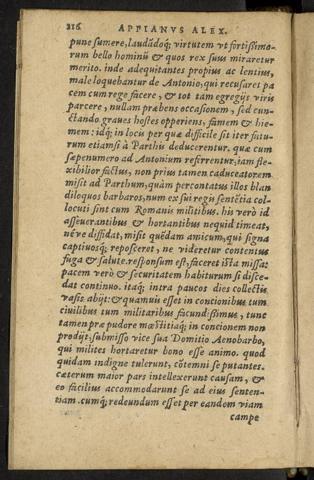 216 APPIANVS ALEX.
pune sumere, laudādoq́; virtutem vt fortissimo-
rum bello hominū & quos rex suus miraretur
merito. inde adequitantes propius ac lentius,
male loquebantur de Antonio, qui recusaret pa
cem cum rege facere, & tot tam egregijs viris
parcere, nullam præbens occasionem, sed cun-
ctando graues hostes opperiens, famem & hie-
mem: idq́; in locis per quæ difficile sit iter futu-
rum etiamsi à Parthis deducerentur. quæ cum
sæpenumero ad Antonium referrentur, iam fle-
xibilior factus, non prius tamen caduceatorem
misit ad Parthum, quàm percontatus illos blan
diloquos barbaros, num ex sui regis sentētia col-
locuti sint cum Romanis militibus. his verò id
asseuerantibus & hortantibus nequid timeat,
néve diffidat, misit quēdam amicum, qui signa
captiuosq́; reposceret, ne videretur contentus
fuga & salute. responsum est, faceret ista missa:
pacem verò & securitatem habiturum si disce-
dat continuo. itaq́; intra paucos dies collectis
vasis abijt: & quamuis esset in concionibus tum
ciuilibus tum militaribus facundissimus, tunc
tamen præ pudore mœstitiaq́; in concionem non
prodijt, submisso vice sua Domitio Aenobarbo,
qui milites hortaretur bono esse animo. quod
quidam indigne tulerunt, cōtemni se putantes.
cæterum maior pars intellexerunt causam, &
eo facilius accommodarunt se ad eius senten-
tiam. cumq́; redeundum esset per eandem viam
campe